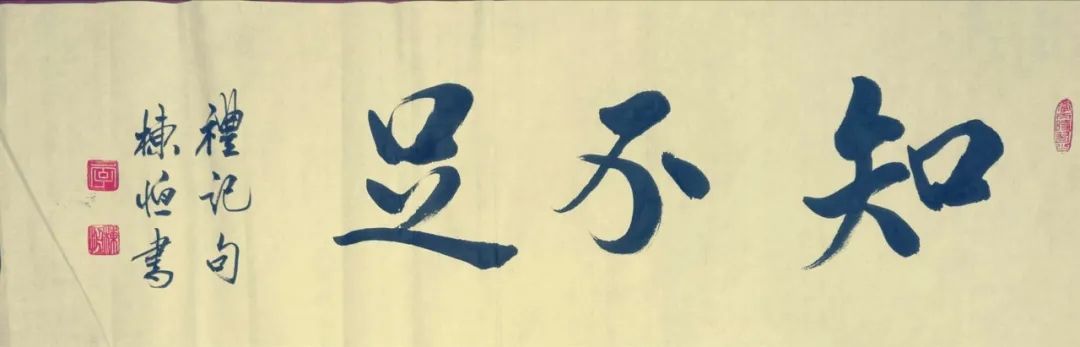 知不足
禮記句
棟恒書